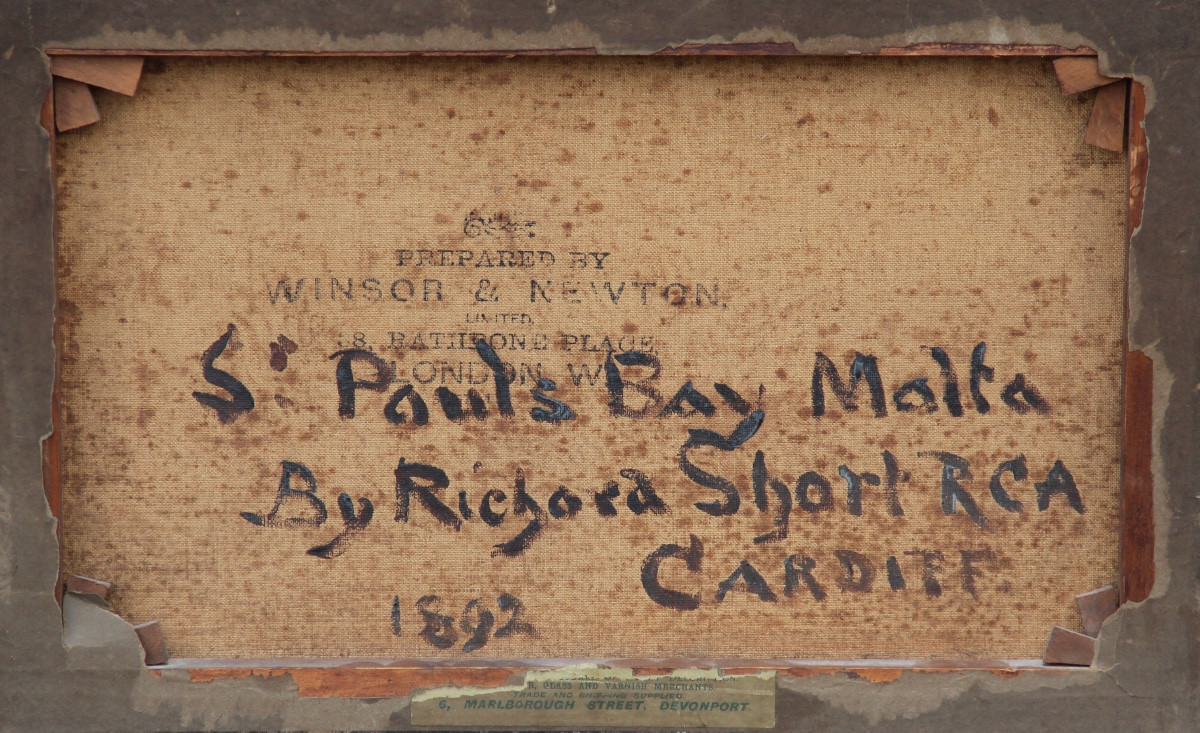 PREPARED BY
WINSOR & NEWTON,
LIMITED.
38, RATHBONE PLACE
LONDON, W.
St Pauls Bay Malta
By Richard Short RCA
CARDIFF.
1892
GLASS AND VARNISH MERCHANTS.
TRADE AND SHIPPING SUPPLIED.
6, MARLBOROUGH STREET, DEVONPORT